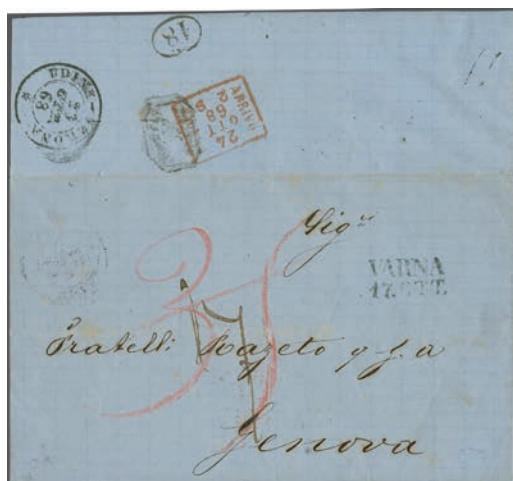 18
UDINE - VERONA
68
ARRIVO
24
OTT
68
2 S
Sig.ri
VARNA
17. OTT.
37
17
Fratelli Razeto q f. a
Genova